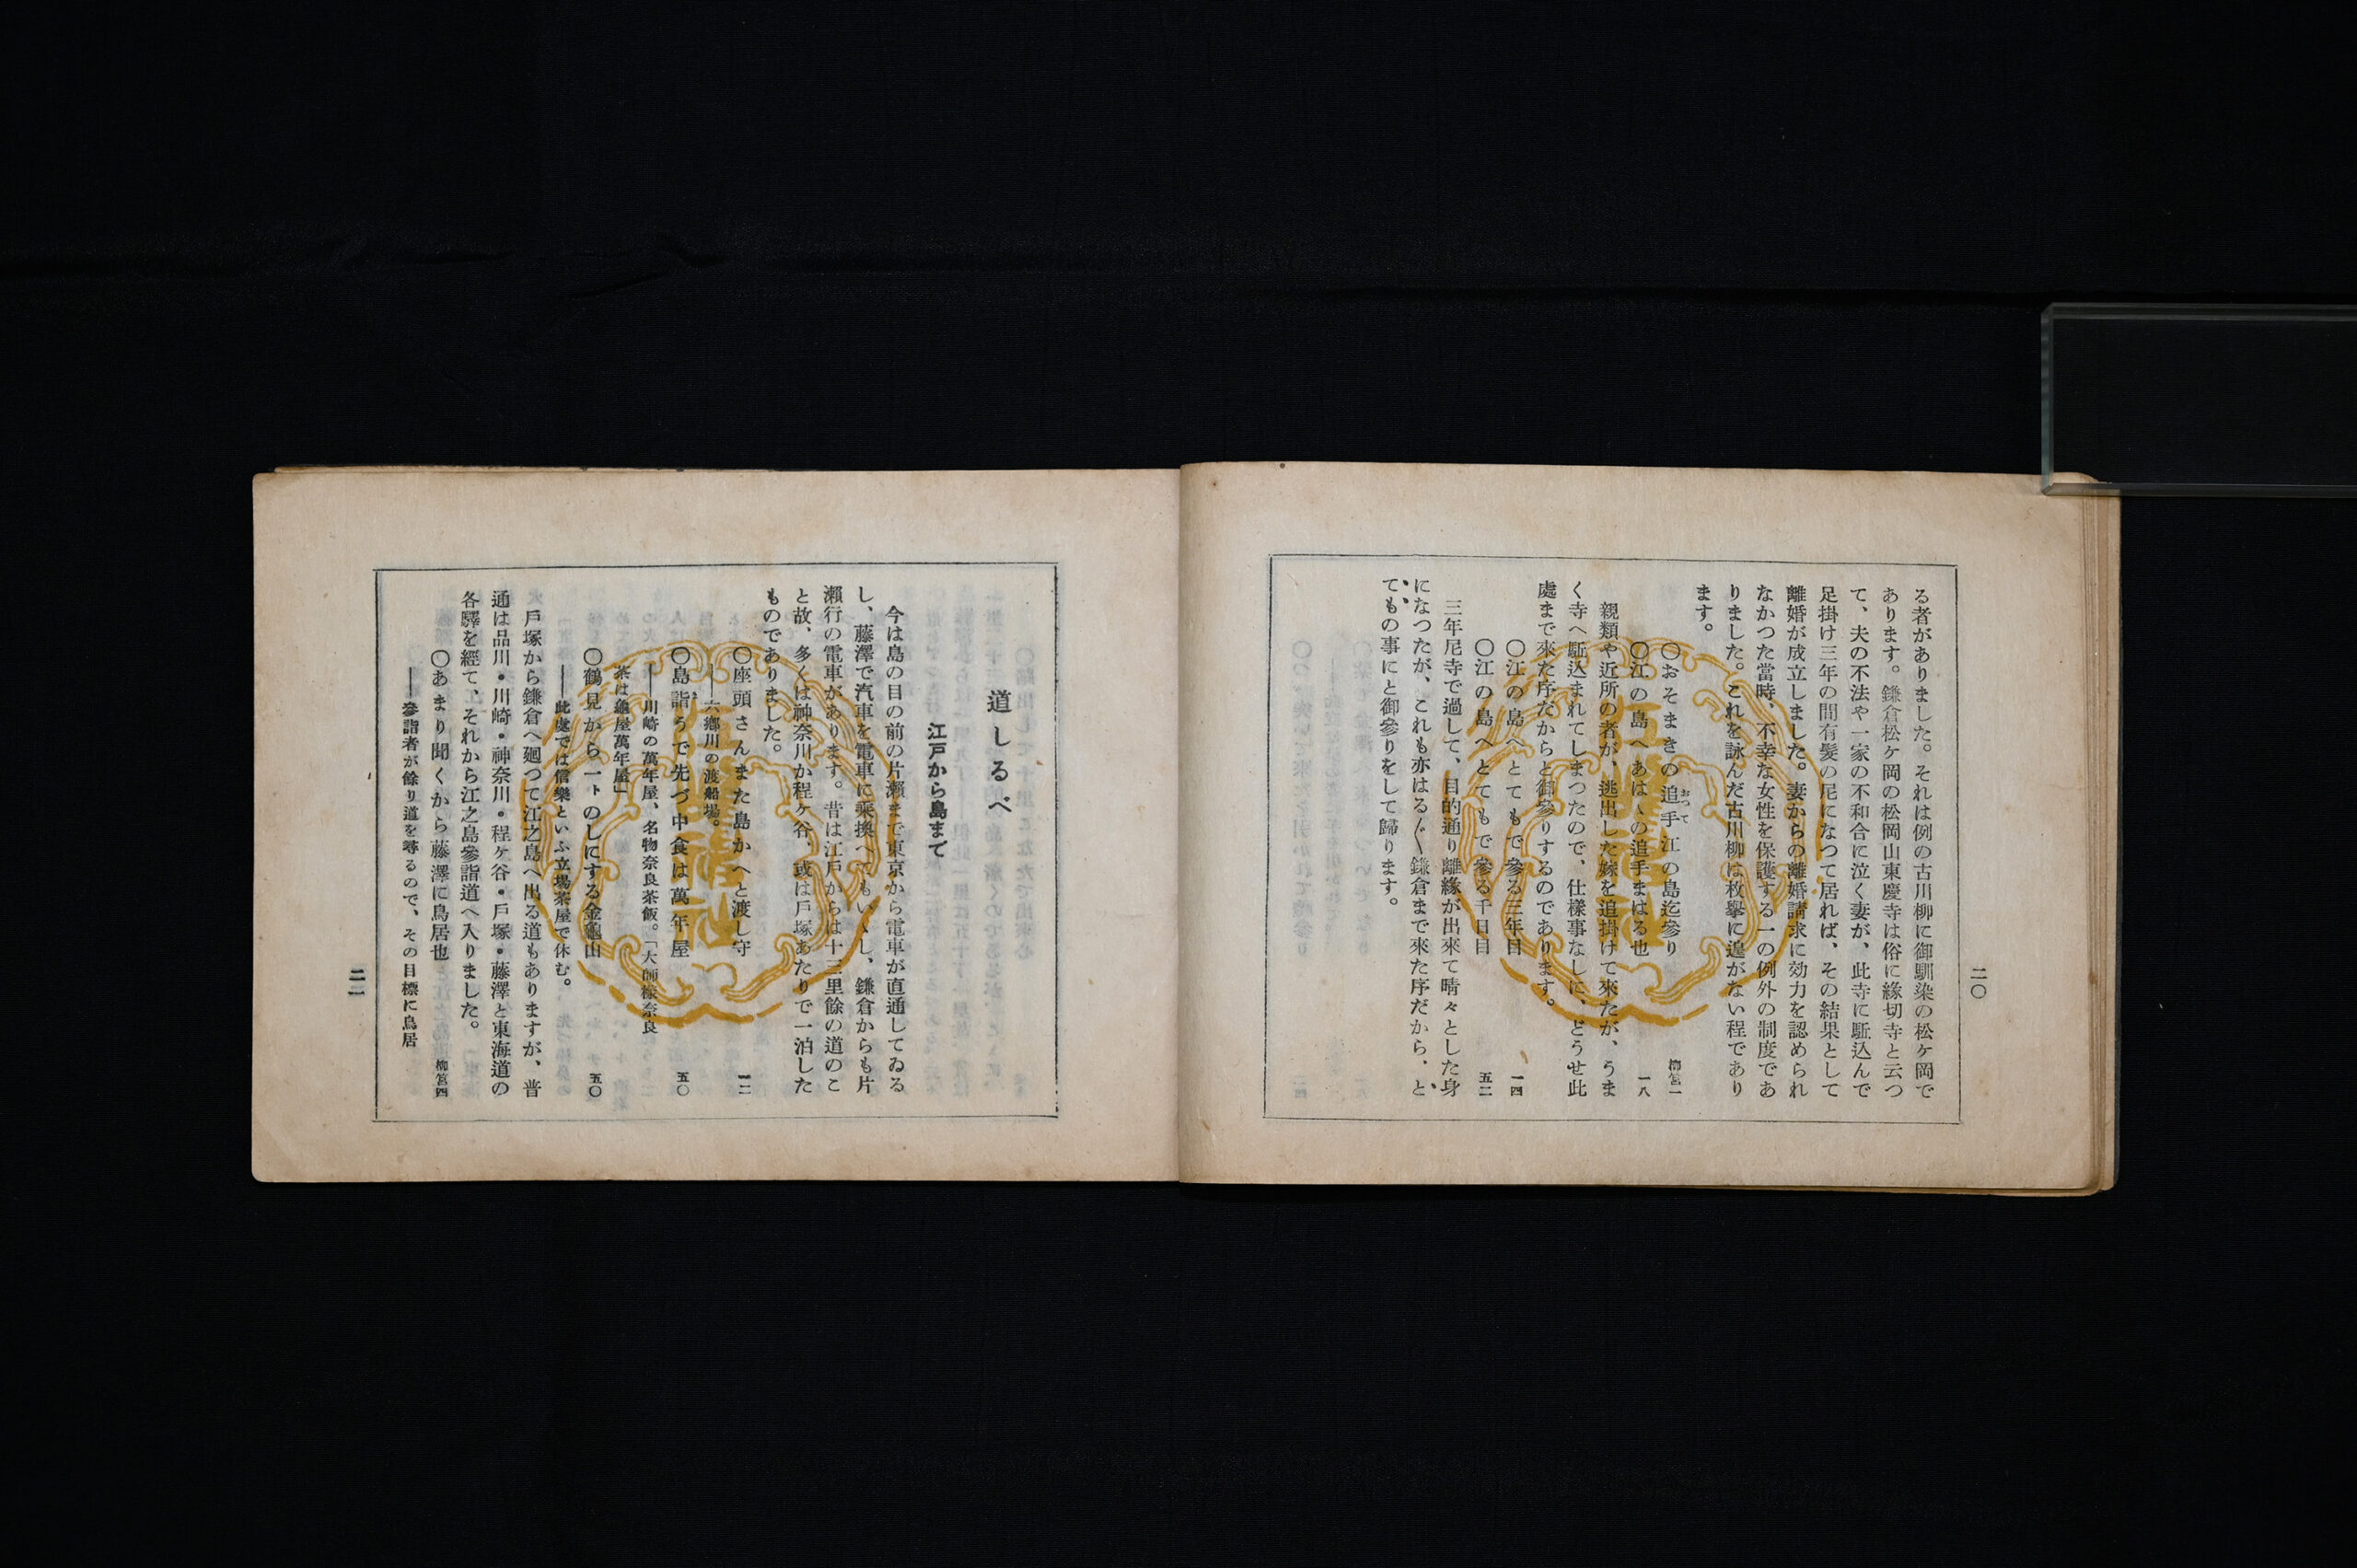 る者がありました。それは例の古川柳に御馴染の松ケ岡で
あります。鎌倉松ケ岡の松岡山東慶寺は俗に緣切寺と云つ
て、夫の不法や一家の不和合に泣く妻が、此寺に駈込んで
足掛け三年の間有髮の尼になつて居れば、その結果として
離婚が成立しました。妻からの離婚請求に効力を認められ
なかつた當時、不幸な女性を保護する一の例外の制度であ
りました。これを詠んだ古川柳は枚擧に遑がない程であり
ます。
〇おそまきの追手江の島迄參り 柳筥一
おつて
〇江の島へあは〻の追手まはる也 一八
親類や近所の者が、逃出した嫁を追掛けて來たが、うま
く寺へ駈込まれてしまつたので、仕樣事なしに、どうせ此
處まで來た序だからと御參りするのであります。
〇江の島へとてもで參る三年目 一四
〇江の島へとてもで參る千日目 五二
三年尼寺で過して、目的通り離緣が出來て晴々とした身
になつたが、これも亦はる〴〵鎌倉まで來た序だから、と
ても の事にと御參りをして歸ります。
二〇
道しるべ
江戸から島まで
今は島の目の前の片瀨まで東京から電車が直通してゐる
し、藤澤で汽車を電車に乘換へてもいゝし、鎌倉からも片
瀨行の電車があります。昔は江戸からは十三里餘の道のこ
と故、多くは神奈川か程ケ谷、或は戸塚あたりで一泊した
ものでありました。
〇座頭さんまた島かへと渡し守 一二
――六鄕川の渡船場。
〇島詣うで先づ中食は萬年屋 五〇
――川崎の萬年屋、名物奈良茶飯。「大師樣奈良
茶は龜屋萬年屋」
〇鶴見から一トのしにする金龜山 五〇
――此處では信樂といふ立場茶屋で休む。
戸塚から鎌倉へ廻つて江之島へ出る道もありますが、普
通は品川・川崎・神奈川・程ケ谷・戸塚・藤澤と東海道の
各驛を經て、それから江之島參詣道へ入りました。
〇あまり聞くから藤澤に鳥居也 柳筥四
――參詣者が餘り道を尋るので、その目標に鳥居
二一